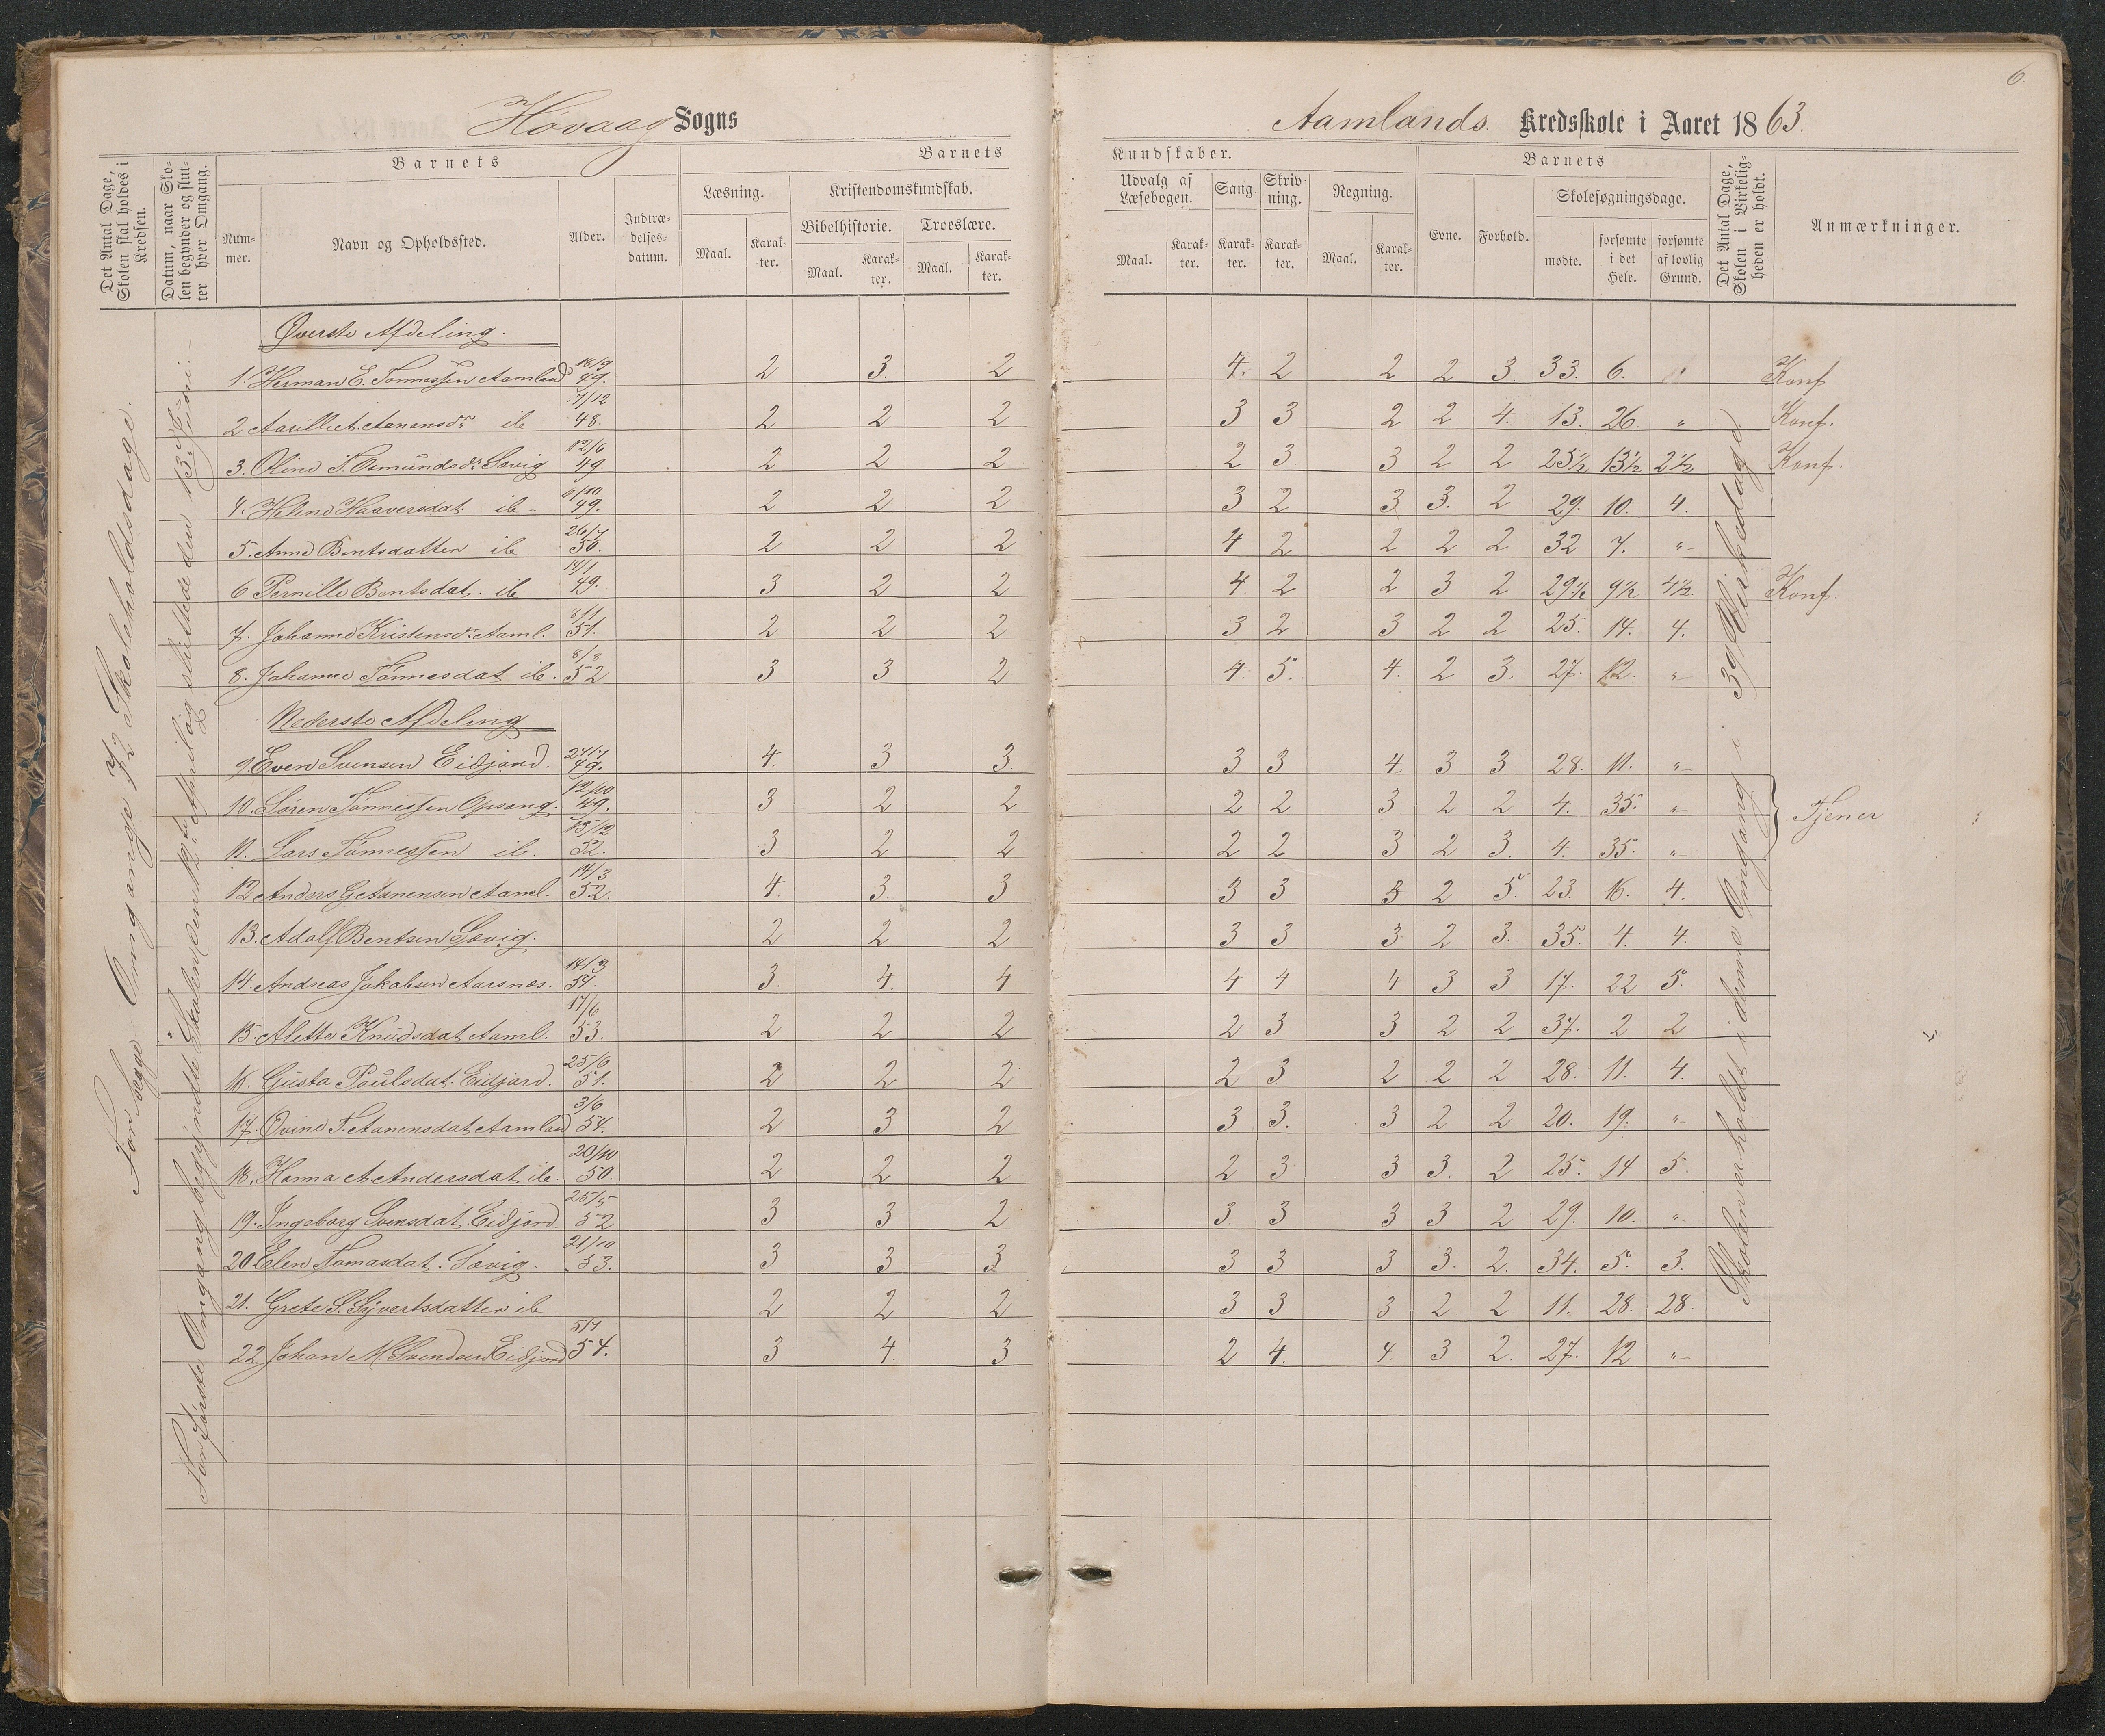 6.
Hövaag Sogns
Aamlands Kredsskole i Aaret 1863.
Det Antal Dage, Skolen skal holdes i Kredsen.
Datum, naar Skolen begynder og slutter hver Omgang.
Barnets
Nummer.
Navn og Opholdssted.
Alder.
Indtrædelsesdatum.
Barnets
Læsning.
Maal.
Karakter.
Kristendomskundskab.
Bibelhistorie.
Maal.
Karakter.
Troeslære.
Maal.
Karakter.
Kundskaber.
Udvalg af Læsebogen.
Maal.
Karakter.
Sang.
Karakter.
Skrivning.
Karakter.
Regning.
Maal.
Karakter.
Barnets
Evne.
Forhold.
Skolesøgningsdage.
mødte.
forsømte i det Hele.
forsømte af lovlig Grund.
Det Antal Dage, Skolen i Virkeligheden er holdt.
Anmærkninger.
Omgange 72 Skoleholdsdage.
Første Omgang begyndte Skolen den April og sluttede den 13de Juni.
Øverste Afdeling.
1. Herman E. Tönnessen Aamland 18/9 49. 2 3. 2 4. 2 2 2 3. 33. 6. " Konf
2 Aanensdr ib 17/12 48. 2 2 2 3 3 2 2 4. 13. 26. " Konf.
3. Oline T. Osmundsdr. Sævig 12/6 49. 2 2 2 2 3 3 2 2 25½ 13½ 2½ Konf.
4. Helene Haaversdat. ib - /10 49. 2 2 2 3 2 3 3. 2 29. 10. 4.
5. Anne Bentsdatter ib 26/7 50. 2 2 2 4 2 2 2 2 32 7. "
6 Pernille Bentsdat. ib 14/1 49. 3 2 2 4 2 2 3 2 29½ 9½ 4½ Konf.
7. Johanne Kristensdr. Aaml. 8/1 51. 2 2 2 3 2 3 2 2 25. 14. 4.
8. Johanne Tönnesdat ib. 8/8 52 3 3 2 4. 5. 4. 2 3. 27. 12. "
Nederste Afdeling
9. Even Svensen Eidjord. 27/7 49. 4. 3 3. 3 3 4 3 3 28. 11. "
10. Sören Tönnessen Opsang. 12/10 49. 3 2 2 2 2 3 2 2 4. 35. "
Tjener
11. Lars Tönnessen ib. 13/12 52. 3 2 2 2 2 3 2 3. 4. 35. "
12 Anders G Aanensen Aaml. 14/3 52. 4. 3. 3 3 3 3 2 5. 23. 16. 4.
13. Adolf Bentsen Sævig. 2 2 2 3 3 3 2 3. 35. 4. 4.
14. Andreas Jakobsen Aarsnæs. 14/3 51. 3. 4. 4 4 4 4 3 3 17. 22 5.
15. Alette Knudsdat Aaml. 17/6 53. 2 2 2 2 3 3 2 2 37. 2 2
16. Gusta Paulsdat. Eidjord. 25/6 51. 2 2 2 2 3 2 2 2 28. 11. 4.
17. Ovine T. Aanensdat Aamland 3/6 54. 2 3 2 3 3. 3 2 2 20. 19. "
18. Hanna A. Andersdat ib. 20/10 50. 2 2 2 2 3 3 3. 2 25. 14 5.
19. Ingeborg Svensdat. Eidjord. 25/5 52 3 3 2 3. 3 3 3 2 29. 10. "
20 Elen Tomasdat. Sævig. 21/10 53. 3 3 3 3 3 3 3. 2. 34. 5. 3.
21. Grete S. Syvertsdatter ib 2 2 2 3 3 3 2 2 11. 28. 28.
22 Johan M Svendsen Eidjord 5/7 54. 3 4. 3 2 4. 4. 3 2. 27. 12 "
Skolen er holdt i denne Omgang i 39 Virkedage